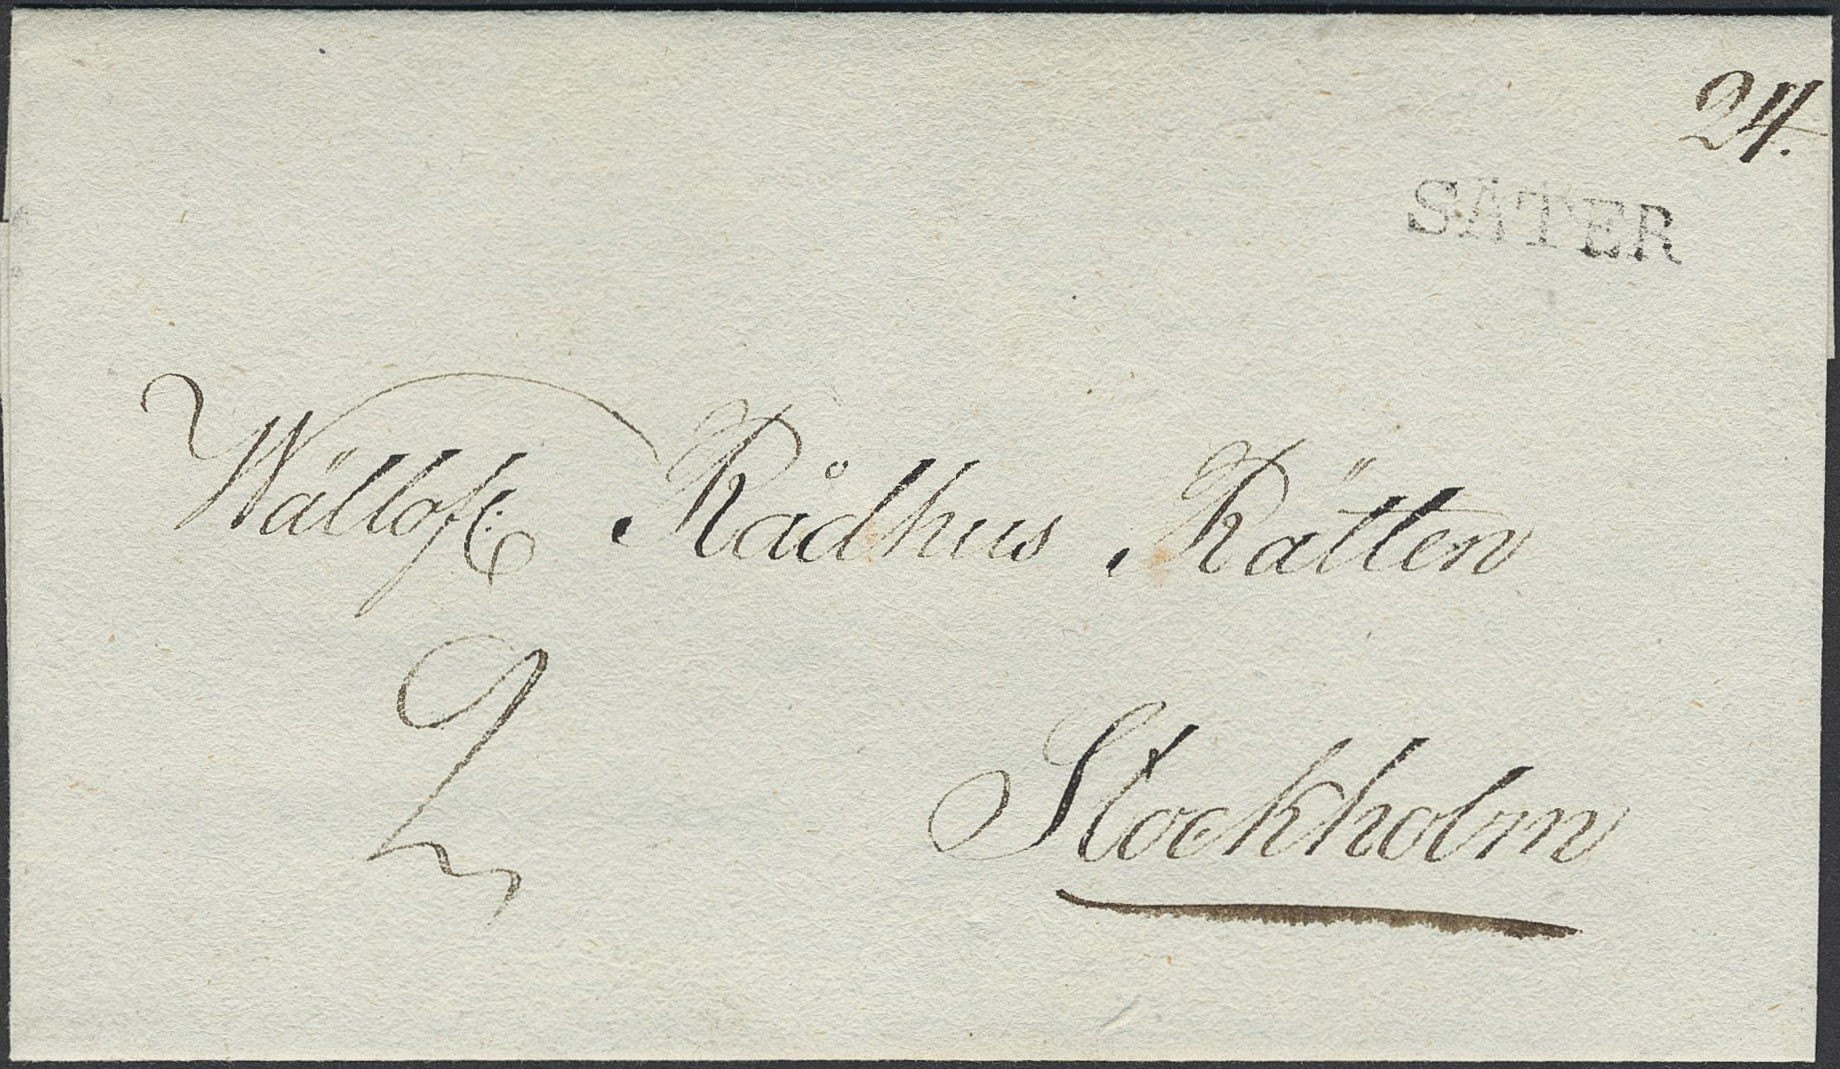 24.
SÄTER
Wällofl: Rådhus Rätten
2
Stockholm